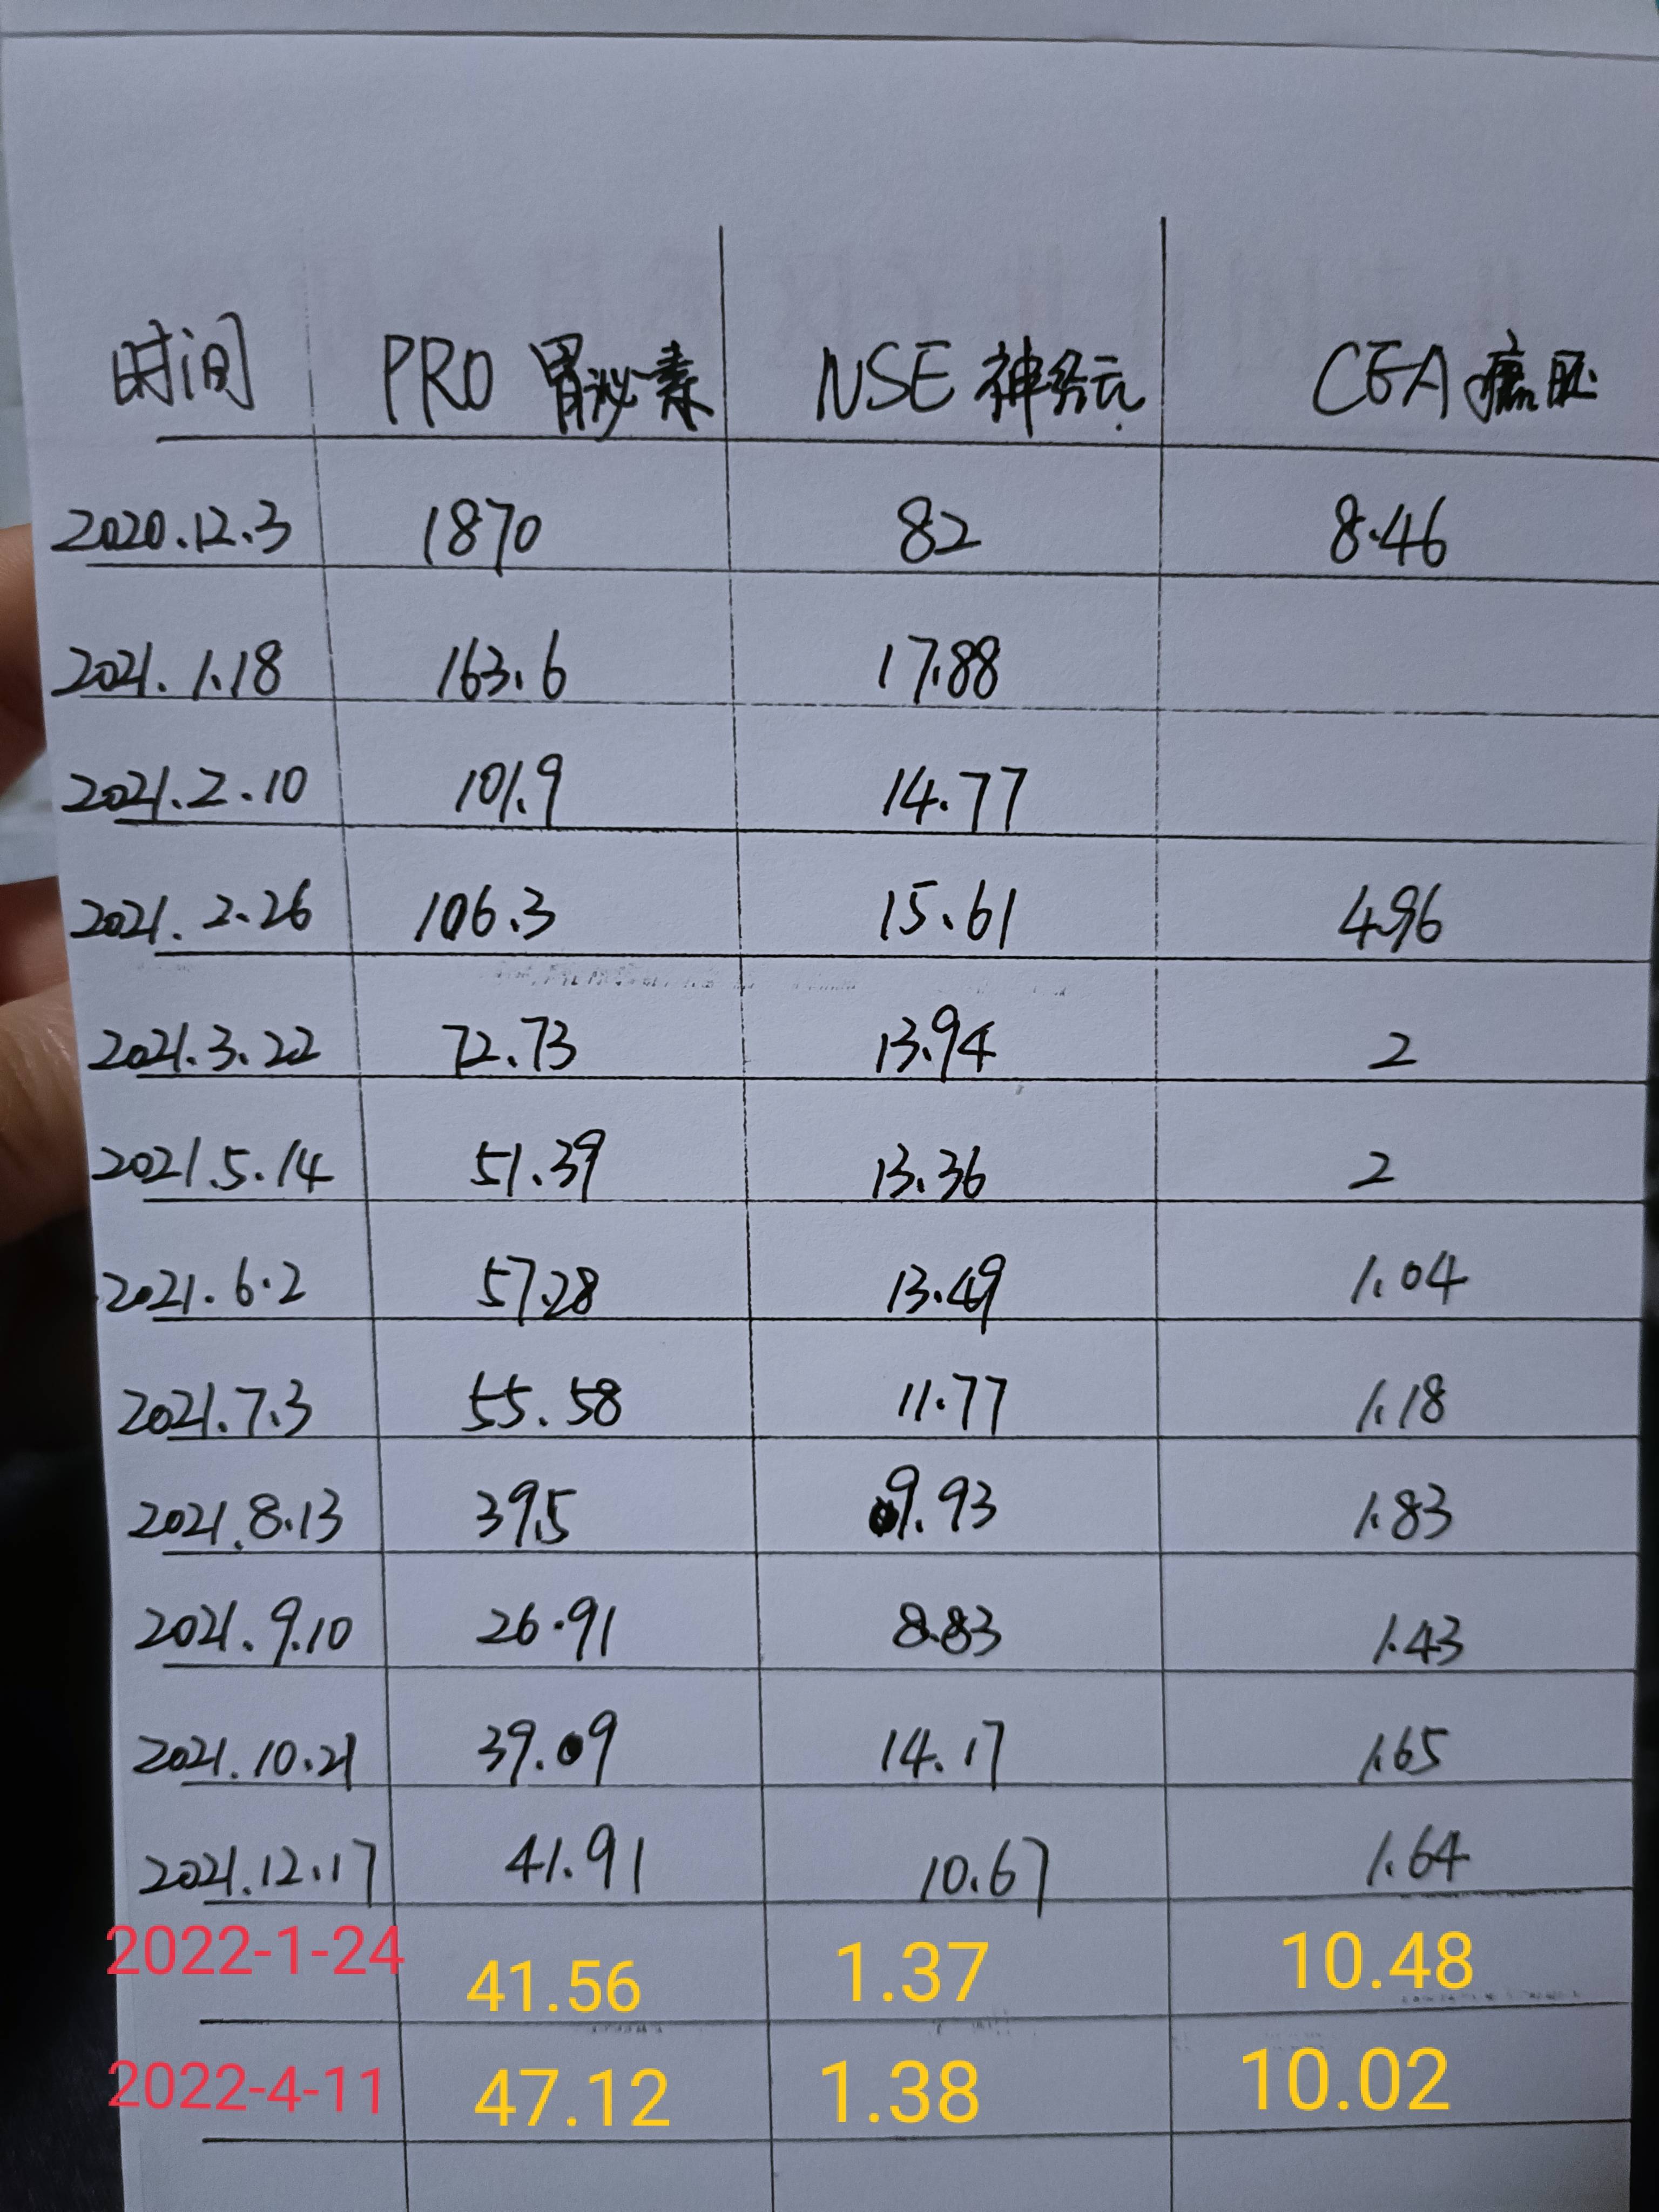 时间 PRO 胃泌素 NSE 神经元 CEA 癌胚
2020.12.3 1870 82 8.46
2021.1.18 163.6 17.88
2021.2.10 101.9 14.77
2021.2.26 106.3 15.61 4.96
2021.3.22 72.73 13.94 2
2021.5.14 51.39 13.36 2
2021.6.2 57.28 13.49 1.04
2021.7.3 55.58 11.77 1.18
2021.8.13 39.5 9.93 1.83
2021.9.10 26.91 8.83 1.43
2021.10.21 39.09 14.17 1.65
2021.12.17 41.91 10.67 1.64
2022-1-24 41.56 1.37 10.48
2022-4-11 47.12 1.38 10.02